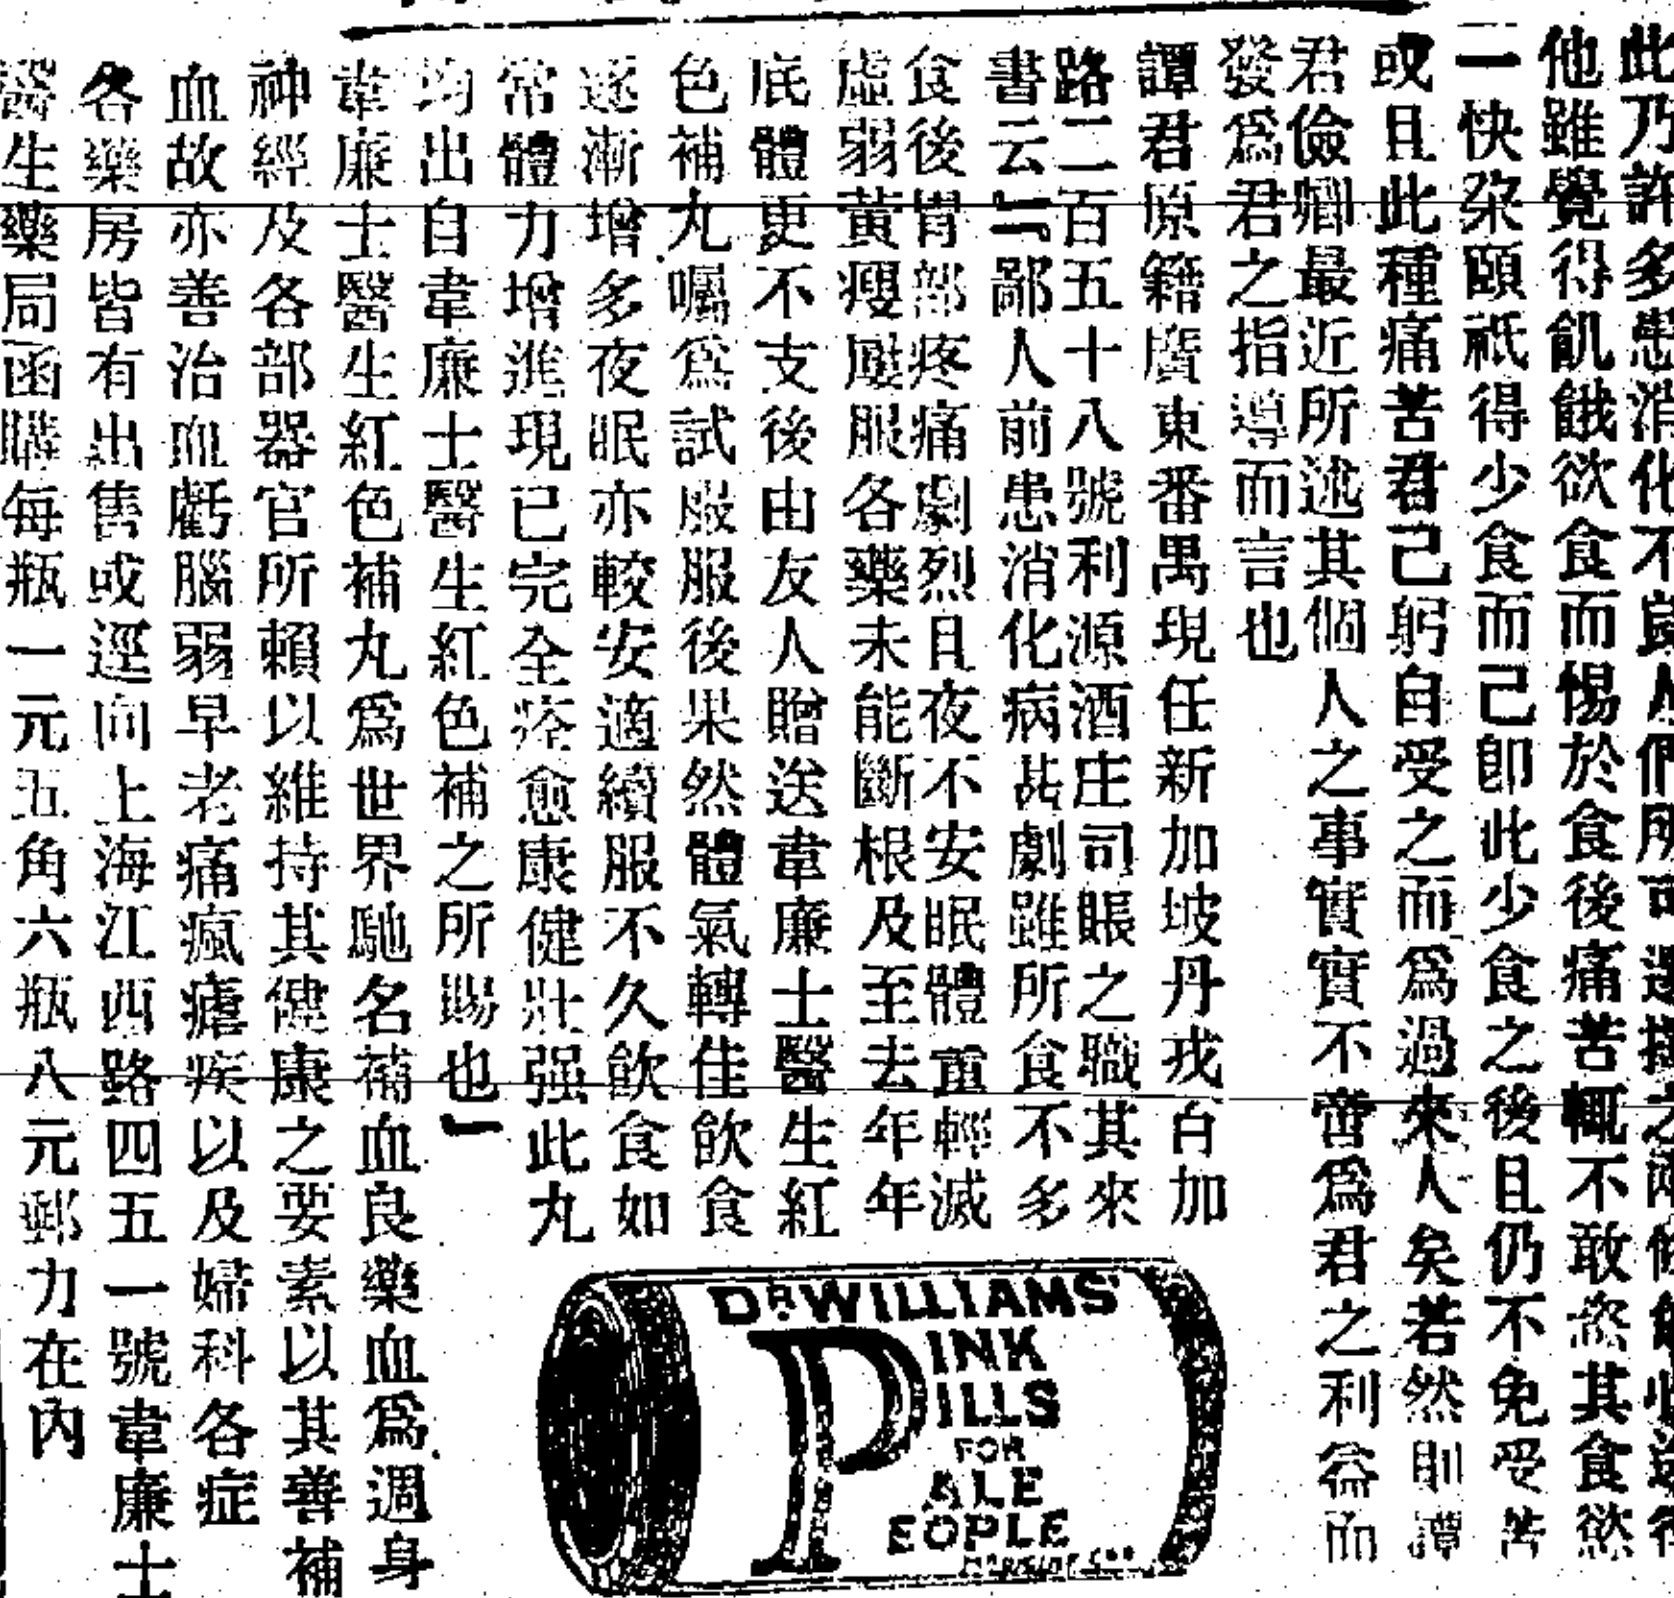 此乃許多患消化不良人們所可選擇之兩
他雖覺得飢餓欲食而惕於食後痛苦輒不敢恣其食慾
一快朶頤祇得少食而己卽此少食之後且仍不免受苦
或且此種痛苦君己躬自受之而爲過來人矣若然則譚
君儉卿最近所述其個人之事實實不啻爲君之利益而
發爲君之指導而言也
譚君原籍廣東番禺現任新加坡丹戎百加
路二百五十八號利源酒庄司賬之職其來
書云『鄙人前患消化病甚劇雖所食不多
食後胃部疼痛劇烈且夜不安眠體重輕減
虛弱黃瘦屢服各藥未能斷根及至去年年
底體更不支後由友人贈送韋廉士醫生紅
色補丸囑爲試服服後果然體氣轉佳飲食
逐漸增多夜眠亦較安適續服不久飲食如
常體力增進現已完全痊愈康健壯强此丸
均出自韋廉士醫生紅色補之所賜也』
韋廉士醫生紅色補丸爲世界馳名補血良藥血爲週身
神經及各部器官所賴以維持其健康之要素以其善補
血故亦善治血虧腦弱早老痛瘋瘧疾以及婦科各症
各藥房皆有出售或逕向上海江西路四五一號韋廉士
醫生藥局函購每瓶一元五角六瓶八元郵力在內
DR WILLIAMS'
PINK
PILLS
FOR
PALE
PEOPLE